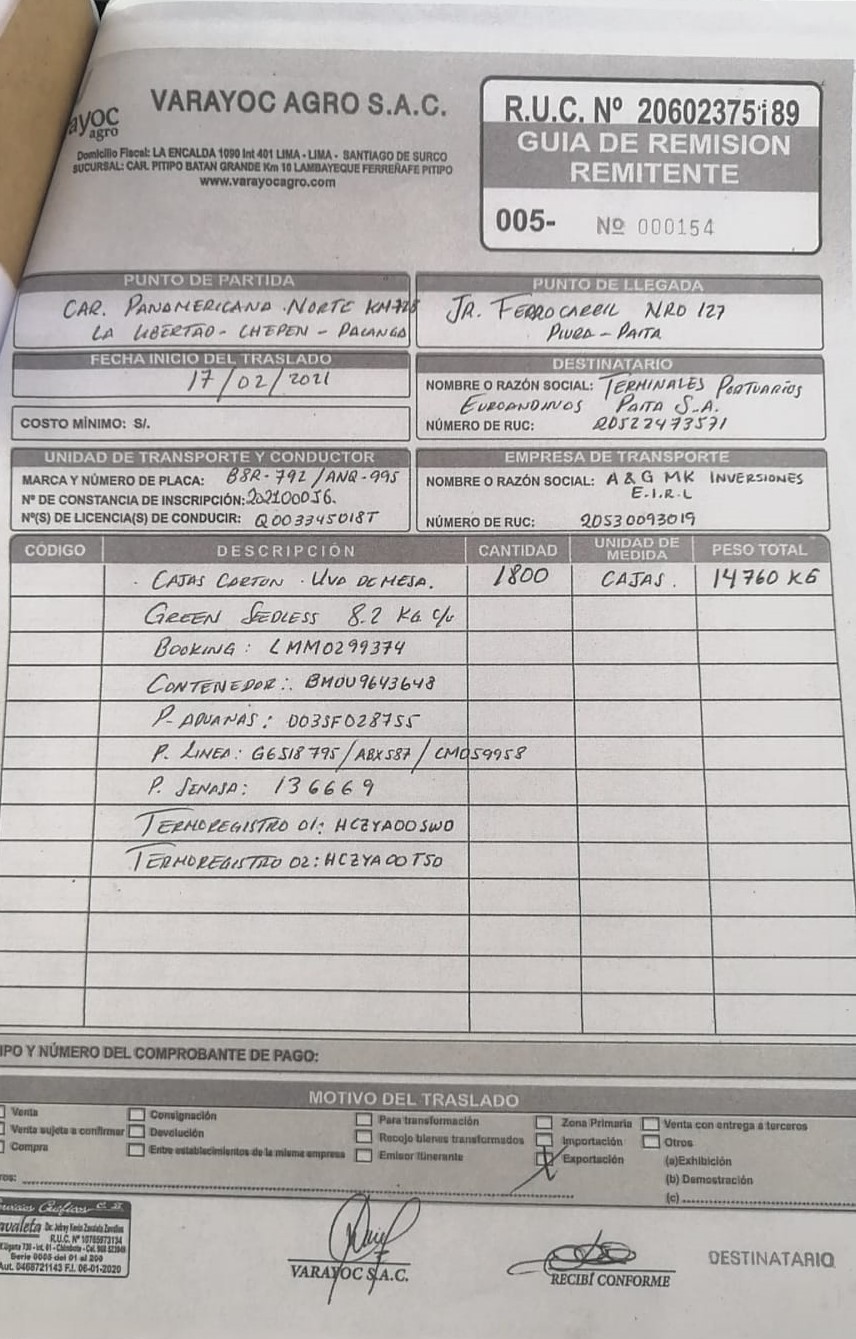 ayoc
agro
VARAYOC AGRO S.A.C.
Domicilio Fiscal: LA ENCALDA 1090 Int 401 LIMA - LIMA - SANTIAGO DE SURCO
SUCURSAL: CAR. PITIPO BATAN GRANDE Km 10 LAMBAYEQUE FERREÑAFE PITIPO
www.varayocagro.com
R.U.C. Nº 20602375189
GUIA DE REMISION
REMITENTE
005- Nº 000154
PUNTO DE PARTIDA
CAR. PANAMERICANA NORTE KM 728
LA LIBERTAD - CHEPEN - PACANGA
PUNTO DE LLEGADA
JR. FERROCARRIL NRO 127
PIURA - PAITA
FECHA INICIO DEL TRASLADO
17/02/2021
COSTO MÍNIMO: S/.
DESTINATARIO
NOMBRE O RAZÓN SOCIAL: TERMINALES PORTUARIOS
EUROANDINOS PAITA S.A.
NÚMERO DE RUC: 20522473571
UNIDAD DE TRANSPORTE Y CONDUCTOR
MARCA Y NÚMERO DE PLACA: B8R-792 / ANQ-995
Nº DE CONSTANCIA DE INSCRIPCIÓN: 202100056.
Nº(S) DE LICENCIA(S) DE CONDUCIR: Q003345018T
EMPRESA DE TRANSPORTE
NOMBRE O RAZÓN SOCIAL: A & G MK INVERSIONES
E.I.R.L
NÚMERO DE RUC: 20530093019
CÓDIGO DESCRIPCIÓN CANTIDAD UNIDAD DE MEDIDA PESO TOTAL
. CAJAS CARTON . UVA DE MESA. 1800 CAJAS. 14760 KG
GREEN SEDLESS 8.2 KG c/u
BOOKING: LMM0299374
CONTENEDOR: BMOU9643648
P. ADUANAS: 003SF028755
P. LINEA: G6518795/ABX587/CM059958
P. SENASA: 136669
TERMOREGISTRO 01: HCZYA00SW0
TERMOREGISTRO 02: HCZYA00T50
IPO Y NÚMERO DEL COMPROBANTE DE PAGO:
MOTIVO DEL TRASLADO
Venta Consignación Para transformación Zona Primaria Venta con entrega a terceros
Venta sujeta a confirmar Devolución Recojo bienes transformados Importación Otros
Compra Entre establecimientos de la misma empresa Emisor Itinerante Exportación (a)Exhibición
(b) Demostración
ros: (c)
Zavaleta De: Jefrey Kevin Zavaleta Zevallos
R.U.C. Nº 10765973134
Serie 0005 del 01 al 200
Aut. 0468721143 F.I. 06-01-2020
VARAYOC S.A.C.
RECIBÍ CONFORME
DESTINATARIO